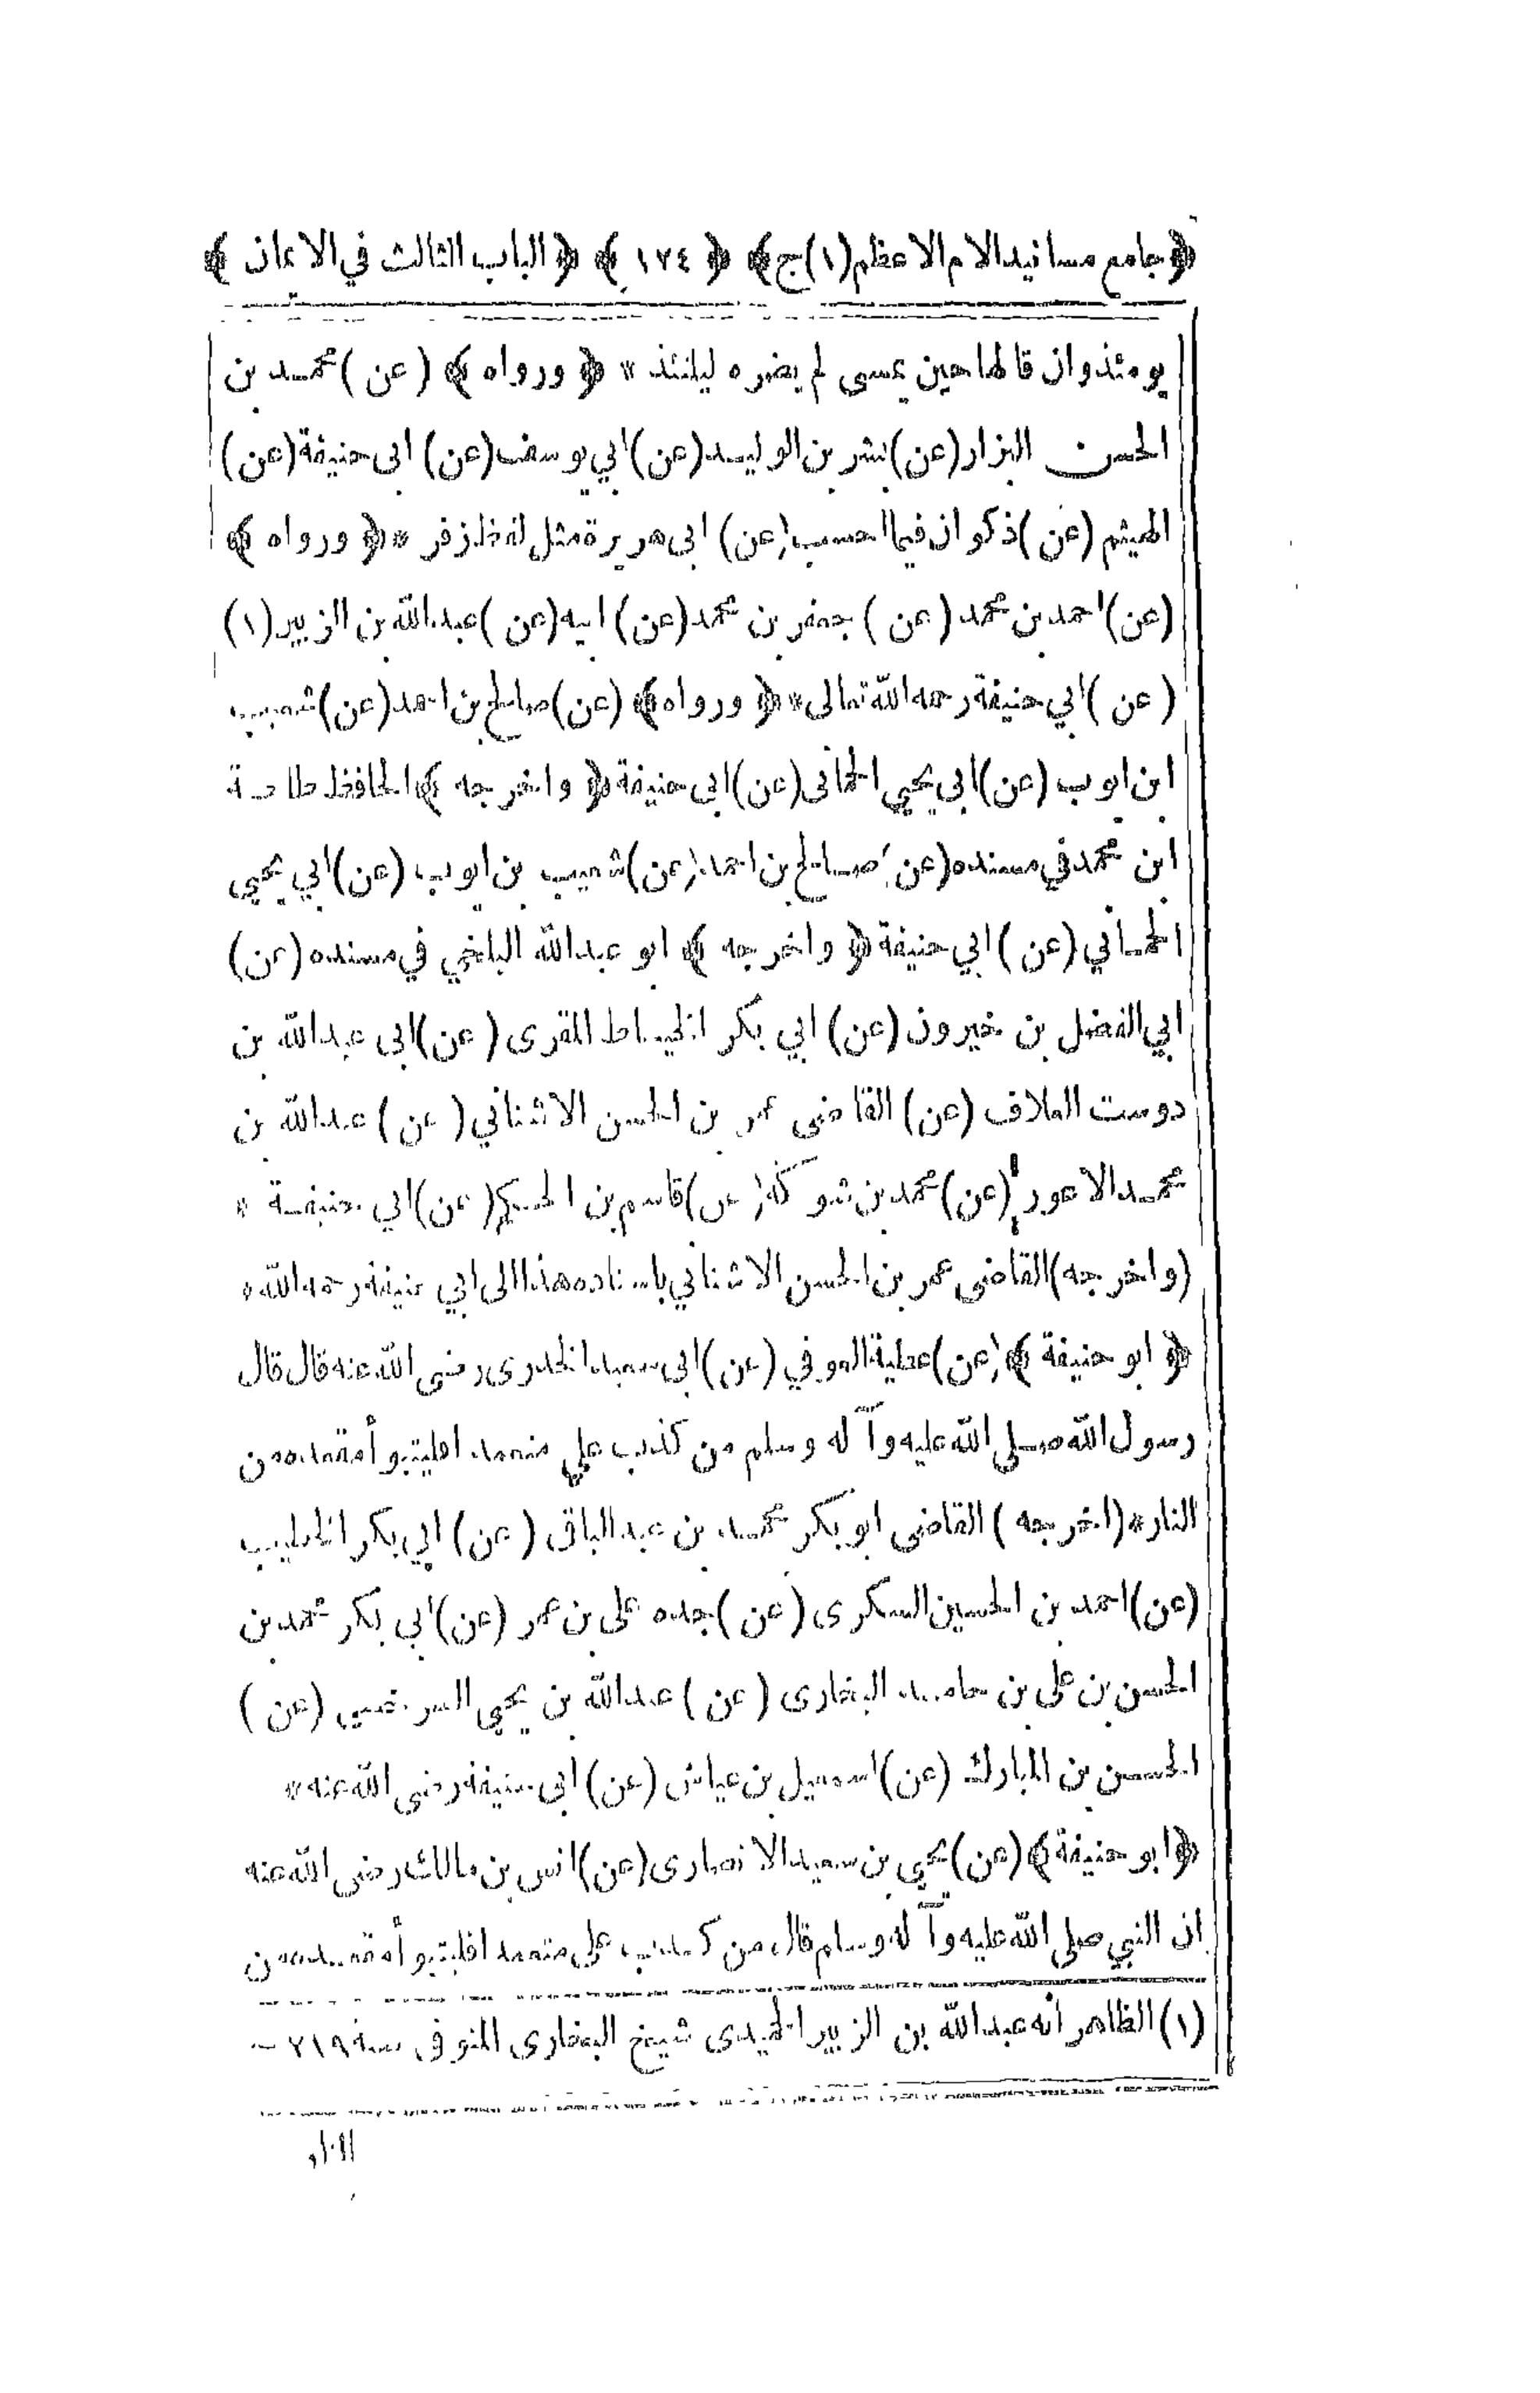 ﴿جامع مسانيد الامام الاعظم(١)ج﴾ ﴿ ١٧٤ ﴾ ﴿ الباب الثالث في الايمان ﴾
يومئذ وان قالها حين يمسى لم يضره ليلتئذ * ﴿ ورواه ﴾ (عن) محمد بن
الحسن البزار (عن) بشر بن الوليد (عن) ابي يوسف (عن) ابى حنيفة (عن)
الهيثم (عن) ذكوان فيما احسب (عن) ابى هريرة مثل لفظ زفر * ﴿ ورواه ﴾
(عن) احمد بن محمد (عن) جعفر بن محمد (عن) ابيه (عن) عبد الله بن الزبير (١)
(عن) ابي حنيفة رحمه الله تعالى * ﴿ ورواه ﴾ (عن) صالح بن احمد (عن) شعيب
ابن ايوب (عن) ابى يحيى الحمانى (عن) ابى حنيفة ﴿ واخرجه ﴾ الحافظ طلحة
ابن محمد في مسنده (عن) صالح بن احمد (عن) شعيب بن ايوب (عن) ابي يحيى
الحماني (عن) ابي حنيفة ﴿ واخرجه ﴾ ابو عبد الله البلخي في مسنده (عن)
ابي الفضل بن خيرون (عن) ابي بكر الخياط المقرى (عن) ابى عبد الله بن
دوست العلاف (عن) القاضى عمر بن الحسن الاشناني (عن) عبد الله بن
محمد الاعور (عن) محمد بن شوكة (عن) قاسم بن الحكم (عن) ابي حنيفة *
(واخرجه) القاضى عمر بن الحسن الاشناني باسناده هذا الى ابي حنيفة رحمه الله *
﴿ ابو حنيفة ﴾ (عن) عطية العوفي (عن) ابى سعيد الخدرى رضى الله عنه قال قال
رسول الله صلى الله عليه وآله وسلم من كذب علي متعمدا فليتبوأ مقعده من
النار * (اخرجه) القاضى ابو بكر محمد بن عبد الباقى (عن) ابي بكر الخطيب
(عن) احمد بن الحسين السكرى (عن) جده على بن عمر (عن) ابي بكر محمد بن
الحسن بن على بن حامد البخارى (عن) عبد الله بن يحيى السرخسى (عن)
الحسن بن المبارك (عن) اسمعيل بن عياش (عن) ابى حنيفة رضى الله عنه *
﴿ ابو حنيفة ﴾ (عن) يحيى بن سعيد الانصارى (عن) انس بن مالك رضى الله عنه
ان النبي صلى الله عليه وآله وسلم قال من كذب على متعمدا فليتبوأ مقعده من
(١) الظاهر أنه عبد الله بن الزبير الحميدى شيخ البخارى المتوفى سنة ٢١٩